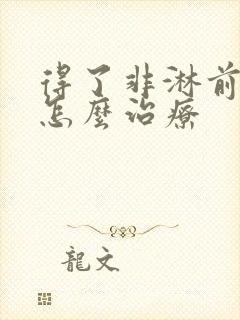 得了非淋前
怎麼治療
龍文